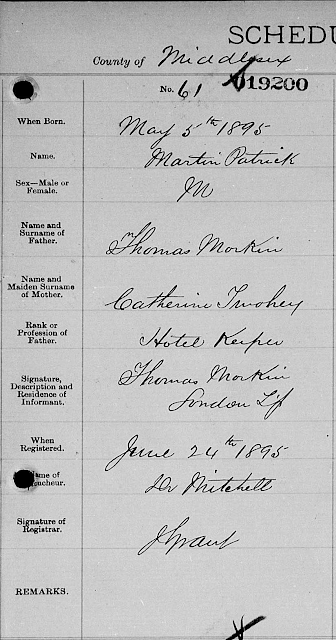 SCHEDU
County of Middlesex
No. 61 019200
When Born. May 5th 1895
Name. Martin Patrick
Sex—Male or Female. M
Name and Surname of Father. Thomas Morkin
Name and Maiden Surname of Mother. Catherine Twohey
Rank or Profession of Father. Hotel Keeper
Signature, Description and Residence of Informant. Thomas Morkin
London Tp
When Registered. June 24th 1895
me of ucheur. Dr Mitchell
Signature of Registrar. J Grant
REMARKS.